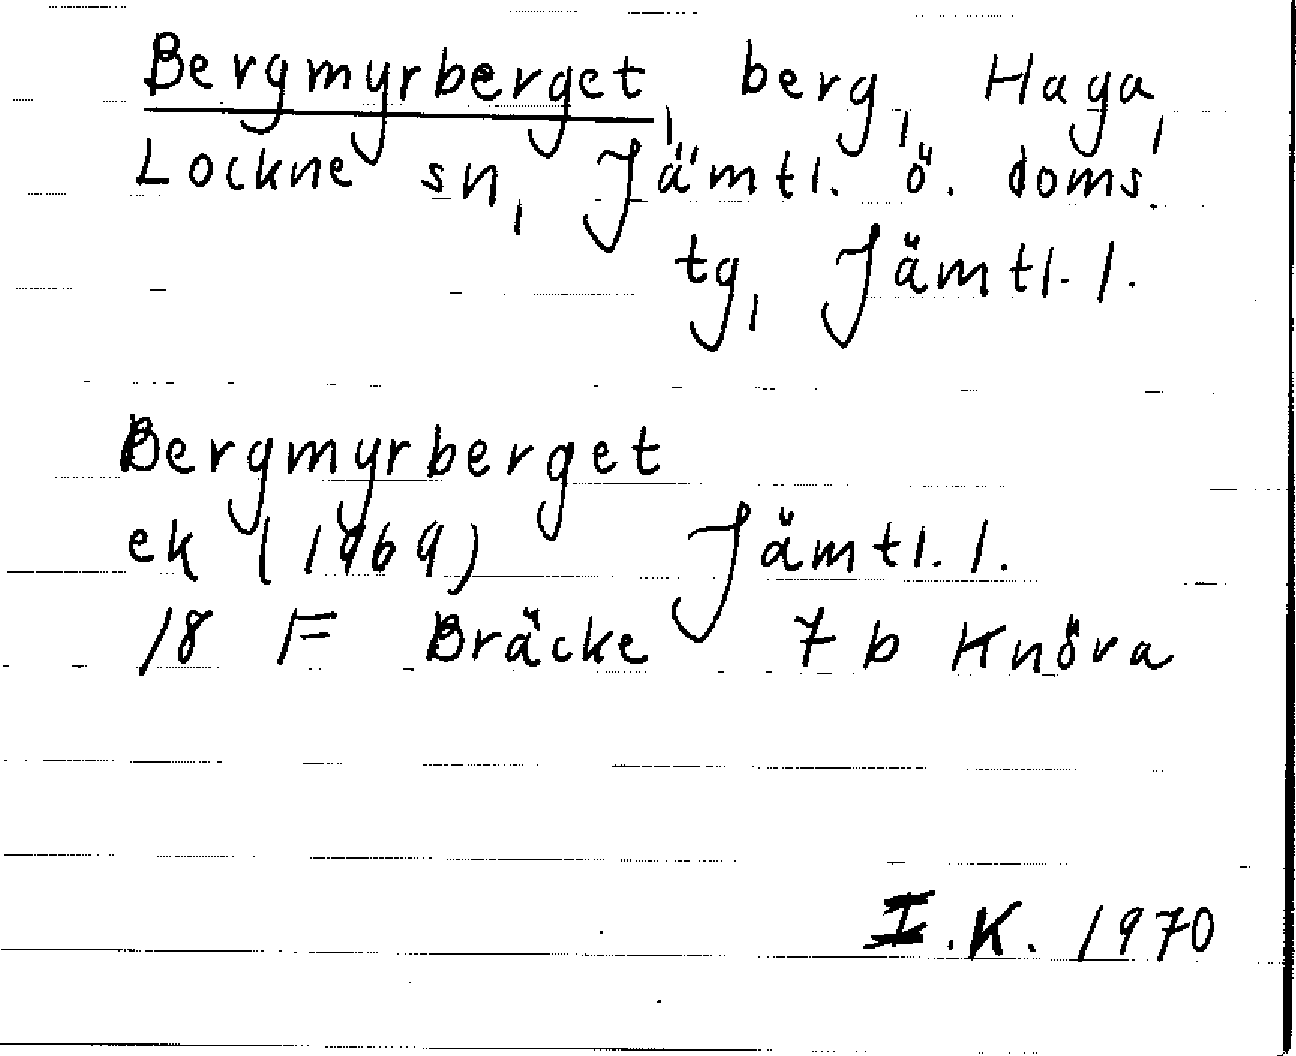 Bergmyrberget, berg, Haga,
Lockne sn, Jämtl. ö. doms.
tg, Jämtl. l.
Bergmyrberget
ek (1969) Jämtl. l.
18 F Bräcke 7 b Knöva
I.K. 1970